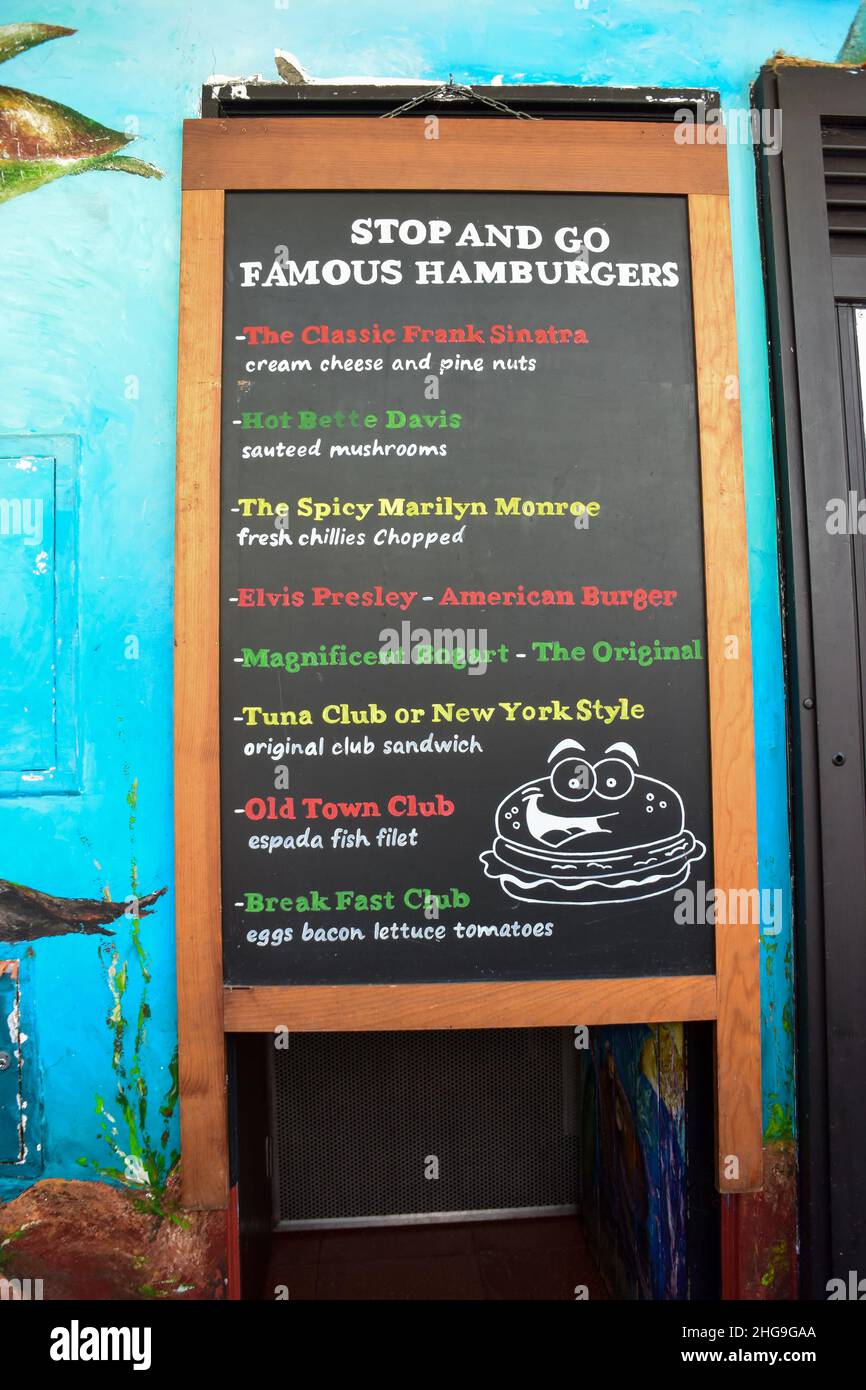 STOP AND GO
FAMOUS HAMBURGERS
-The Classic Frank Sinatra
cream cheese and pine nuts
-Hot Bette Davis
sauteed mushrooms
-The Spicy Marilyn Monroe
fresh chillies Chopped
-Elvis Presley - American Burger
-Magnificent Bogart - The Original
-Tuna Club or New York Style
original club sandwich
-Old Town Club
espada fish filet
-Break Fast Club
eggs bacon lettuce tomatoes
alamy
Image ID: 2HG9GAA
www.alamy.com